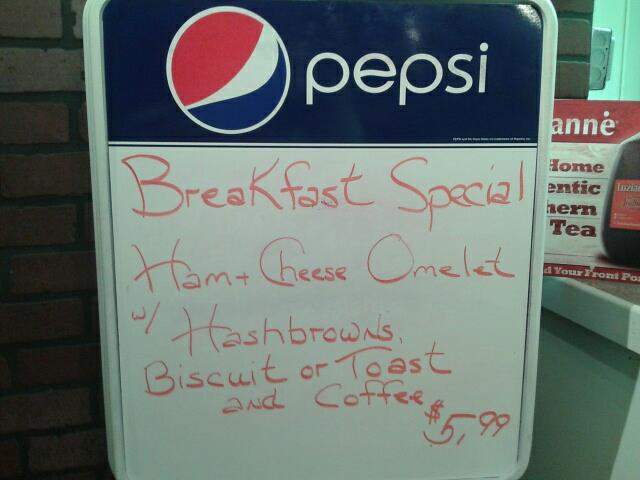 pepsi
BreaKfast Special
Ham + Cheese Omelet
w/ Hashbrowns,
Biscuit or Toast
and Coffee
$5,99
anné
Home
entic
hern
Tea
d Your Front Por